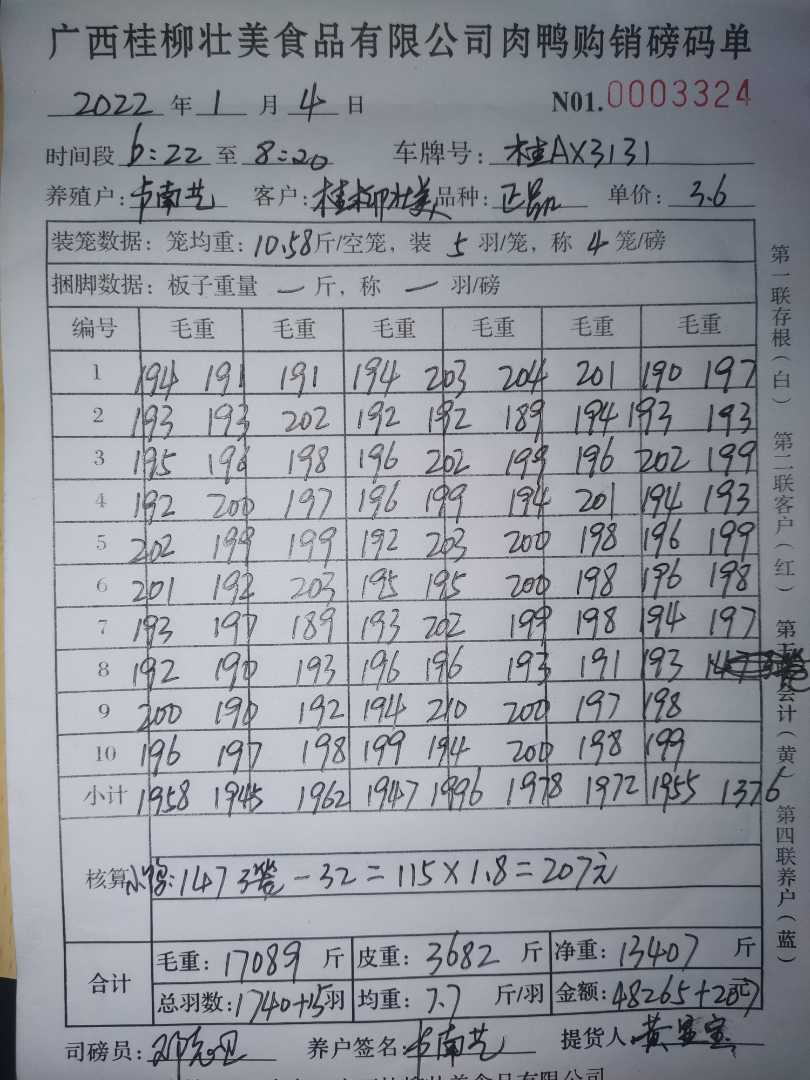 广西桂柳壮美食品有限公司肉鸭购销磅码单
2022 年 1 月 4 日 N01.0003324
时间段 6:22 至 8:20 车牌号: 桂AX3131
养殖户: 卡南芝 客户: 桂柳壮美 品种: 正品 单价: 3.6
装笼数据: 笼均重: 10.58 斤/空笼, 装 5 羽/笼, 称 4 笼/磅
捆脚数据: 板子重量 一 斤, 称 一 羽/磅
编号 毛重 毛重 毛重 毛重 毛重 毛重
1 194 191 191 194 203 204 201 190 197
2 193 193 202 192 192 189 194 193 193
3 195 196 198 196 202 199 196 202 199
4 192 200 197 196 199 194 201 194 193
5 202 199 199 192 203 200 198 196 199
6 201 192 203 195 195 200 198 196 198
7 193 197 189 193 202 199 198 194 197
8 192 190 193 196 196 193 191 193
9 200 190 192 194 210 200 197 198
10 196 197 198 199 194 200 198 199
小计 1958 1945 1962 1947 1996 1978 1972 1955 1376
核算 147 3笼 - 32 = 115 × 1.8 = 207元
合计 毛重: 17089 斤 皮重: 3682 斤 净重: 13407 斤
总羽数: 1740+15 羽 均重: 7.7 斤/羽 金额: 48265+207 元
司磅员: 养户签名: 卡南芝 提货人: 黄
第一联存根(白) 第二联客户(红) 第五联会计(黄) 第四联养户(蓝)